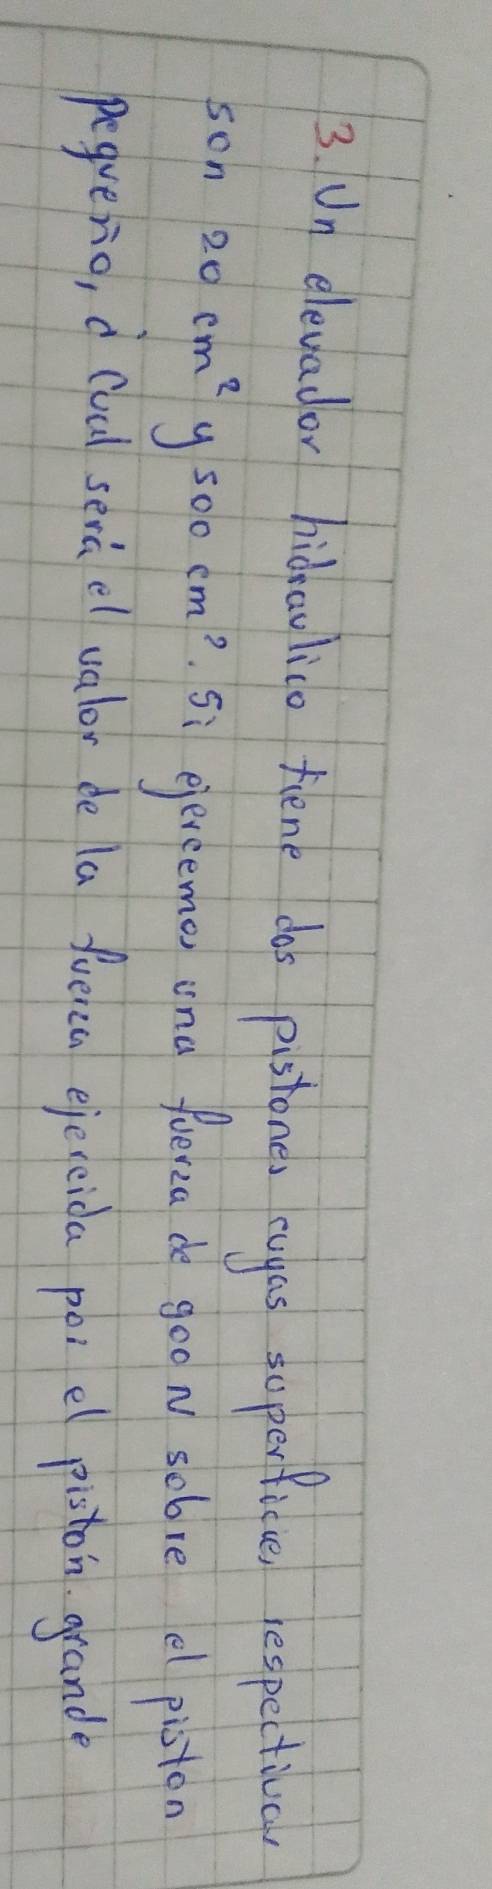 3. Un elevador hidraulico tiene dos pistones cuyas superficies respectivas
son 20 cm² y 500 cm². Si ejercemos una fuerza de 900 N sobre el piston
pequeño, ¿ Cual será el valor de la fuerza ejercida por el pistón. grande